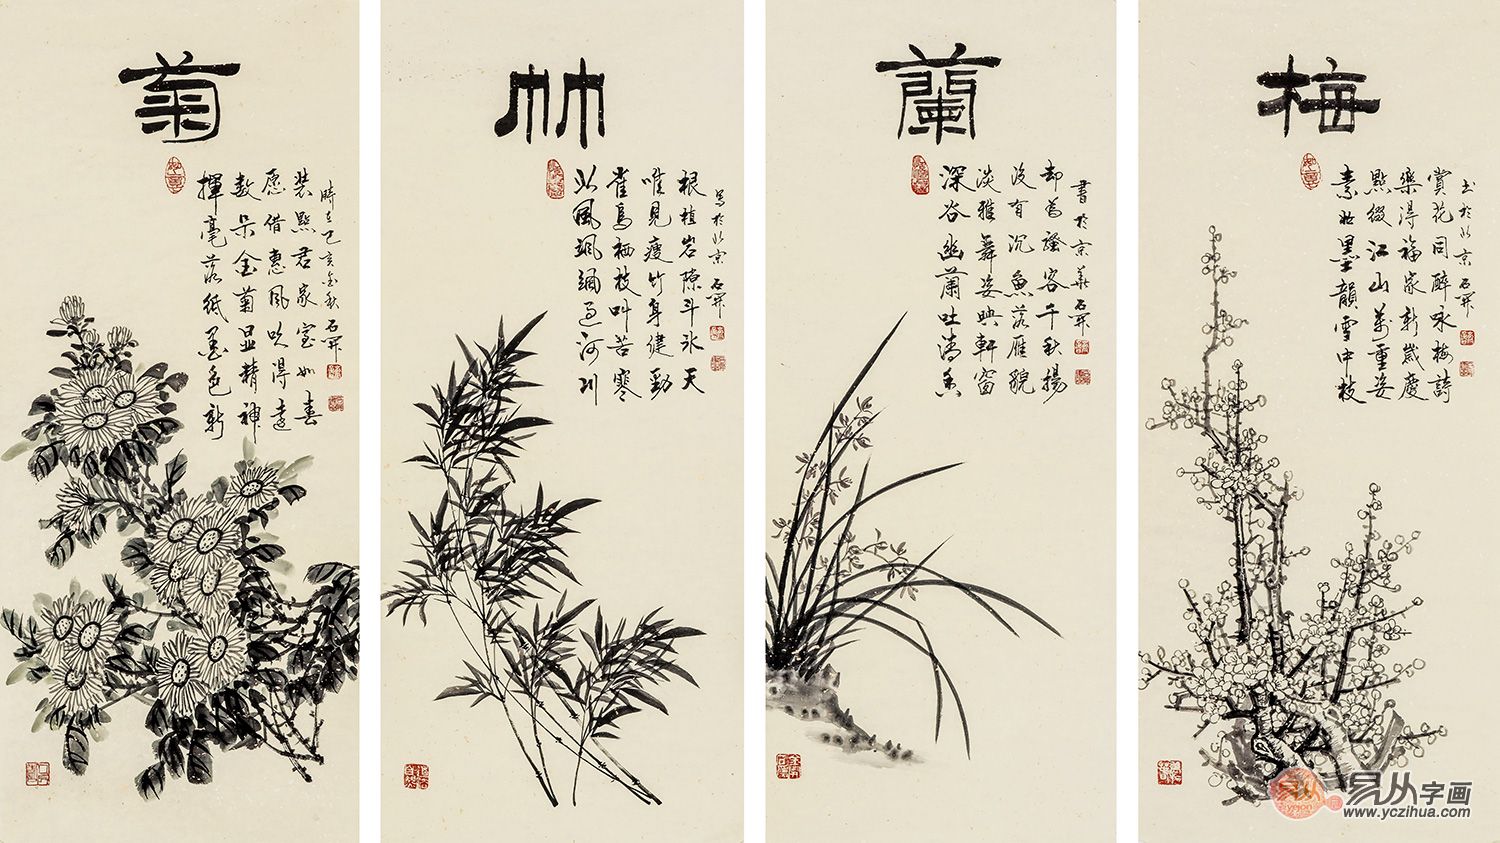 菊
揮毫落紙墨色新
數朵金菊显精神
愿借惠風吹得遠
裝點君家室如春
時在己亥金秋 石開
竹
北風颯颯過河川
雀鳥栖枝叫苦寒
唯見瘦竹身健勁
根植岩隙斗冰天
寫於北京 石開
蘭
深谷幽蘭吐清香
淡雅舞姿映軒窗
没有沉魚落雁貌
却為騷客千秋揚
書於京華 石開
梅
素妝墨韻雪中枝
點綴江山萬重姿
樂得福家新歲慶
賞花同醉詠梅詩
書於北京 石開
易从字画
yejon
www.yczihua.com